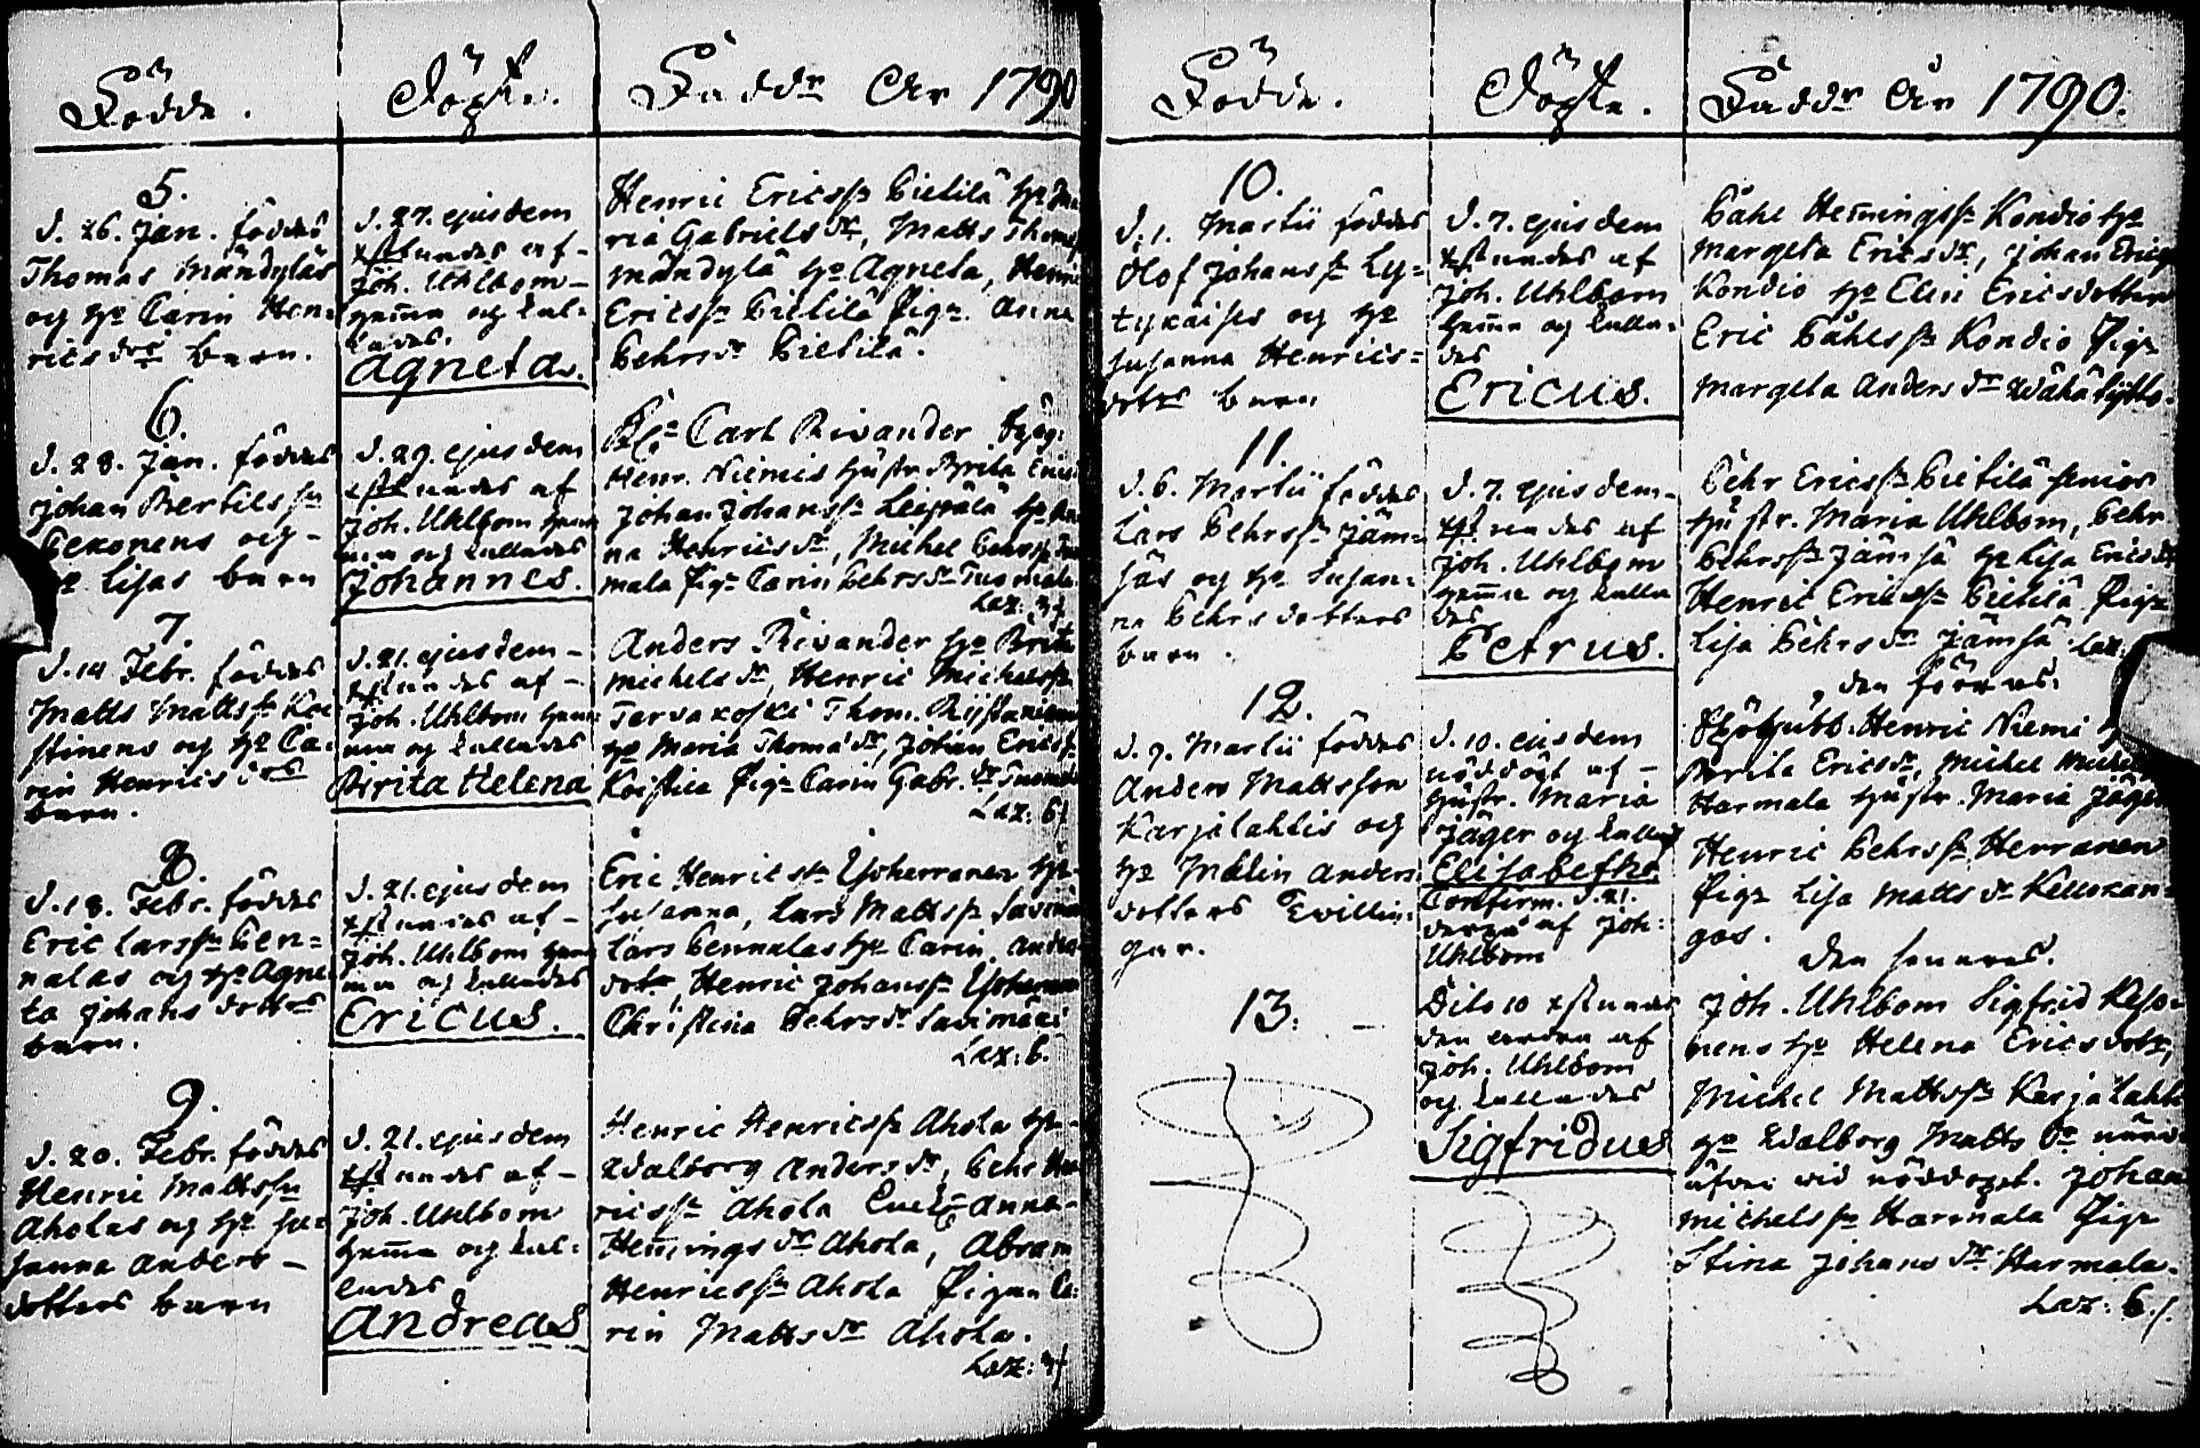 Födde.
Döpte.
Faddr År 1790
5.
d. 26. Jan. föddes
Thomas Mändyläs
och ho Carin Hen-
ricsdrs barn.
d. 27. ejusdem
xstnades af
Joh. Uhlbom
hemma och kal-
lades
Agneta.
Henric Ericss. Pietilä ho Ma
ria Gabrielsdr, Matts Thomss
Mändylä ho Agneta, Henric
Ericss. Pietilä Pig. Anna
Pehrsdr Pietilä.
6.
d. 28. Jan. föddes
Johan Bertelss
Pekonens och
ho Lisas barn
d. 29. ejusdem
xstnades af
Joh. Uhlbom hem
ma och kallades
Johannes.
Carl Rivander
Henr. Niemis hustr Brita Erics
Johan Johanss. Leipälä ho An
na Henricsdr, Michel Pehrss. Tuo
mala Pig. Carin Pehrsdr Tuomala
Laz: 3
7.
d. 14 Febr. föddes
Matts Mattss. Koi
stinens och ho Ca-
rin Henricsdrs
barn.
d. 21. ejusdem
xstnades af
Joh. Uhlbom hem
ma och kallades
Birita Helena
Anders Rivander ho Brita
Michelsdr, Henric Michelss.
Tervakoski Thom. Ristaniemi
ho Maria Thomædr, Johan Ericss.
Koistinen Pig. Carin Gabr.dr Tuomala
Laz: 6
8.
d. 18. Febr. föddes
Eric Larss. Pen-
nalas och ho Agne
ta Johansdotters
barn.
d. 21. ejusdem
xstnades af
Joh. Uhlbom hem
ma och kallades
Ericus.
Eric Henricss. Ylioherranen ho
Susanna, Lars Mattss. Savimäki
Lars Pennalas ho Carin Anders
dotr, Henric Johanss.
Christina Pehrsdr Savimäki
Laz: 6.
9.
d. 20. Febr. föddes
Henric Mattss
Aholas och ho Su-
sanna Anders
dotters barn
d. 21. ejusdem
xstnades af
Joh. Uhlbom
hemma och kal-
lades
Andreas
Henric Henricss. Ahola ho
Walborg Andersdr, Pehr Hen
ricss. Ahola Anna
Henningsdr Ahola, Abram
Henricss. Ahola Pigan Ca-
rin Mattsdr Ahola.
Laz: 3
Födde.
Döpte.
Faddr År 1790.
10.
d. 1. Martii föddes
Olof Johanss. Ly-
tykäises och ho
Susanna Henrics-
dotrs barn
d. 7. ejusdem
xstnades af
Joh. Uhlbom
hemma och kalla-
des
Ericus.
Påhl Henningss. Kondio ho
Margeta Ericsdr, Johan Ericss
Kondio ho Elin Ericsdotter
Eric Påhlss. Kondio Pig.
Margeta Andersdr Wähälyttö.
11.
d. 6. Martii föddes
Lars Pehrss. Jäm-
säs och ho Susan-
na Pehrsdotters
barn.
d. 7. ejusdem
xstnades af
Joh. Uhlbom
hemma och kalla
des
Petrus.
Pehr Ericss. Pietilä senior
hustr. Maria Uhlbom, Pehr
Pehrss. Jämsä ho Lisa Ericsdr
Henric Ericss. Pietilä Pig.
Lisa Pehrsdr Jämsä Laz:
12.
d. 9. Martii föddes
Anders Mattsson
Karjalahtis och
ho Malin Anders-
dotters Tvillin-
gar.
d. 10. ejusdem
nöddöpt af
hustr. Maria
Jäger och kallad
Elisabetha
Confirm. d. 21.
derpå af Joh:
Uhlbom
den förras.
Henric Niemi
Brita Ericsdr, Michel Michelss
Harmala hustr. Maria Jäger
Henric Pehrss. Herranen
Pig. Lisa Mattsdr Kellokan-
gas.
13.
Dito 10 xstnades
den andra af
Joh. Uhlbom
och kallades
Sigfridus
den senares.
Joh. Uhlbom Sigfrid Keso-
nens ho Helena Ericsdotr,
Michel Mattss. Karjalahti
ho Walborg Mattsdr
wid nöddopet. Johan
Michelss. Harmala Pig.
Stina Johansdr Harmala.
Laz: 6.